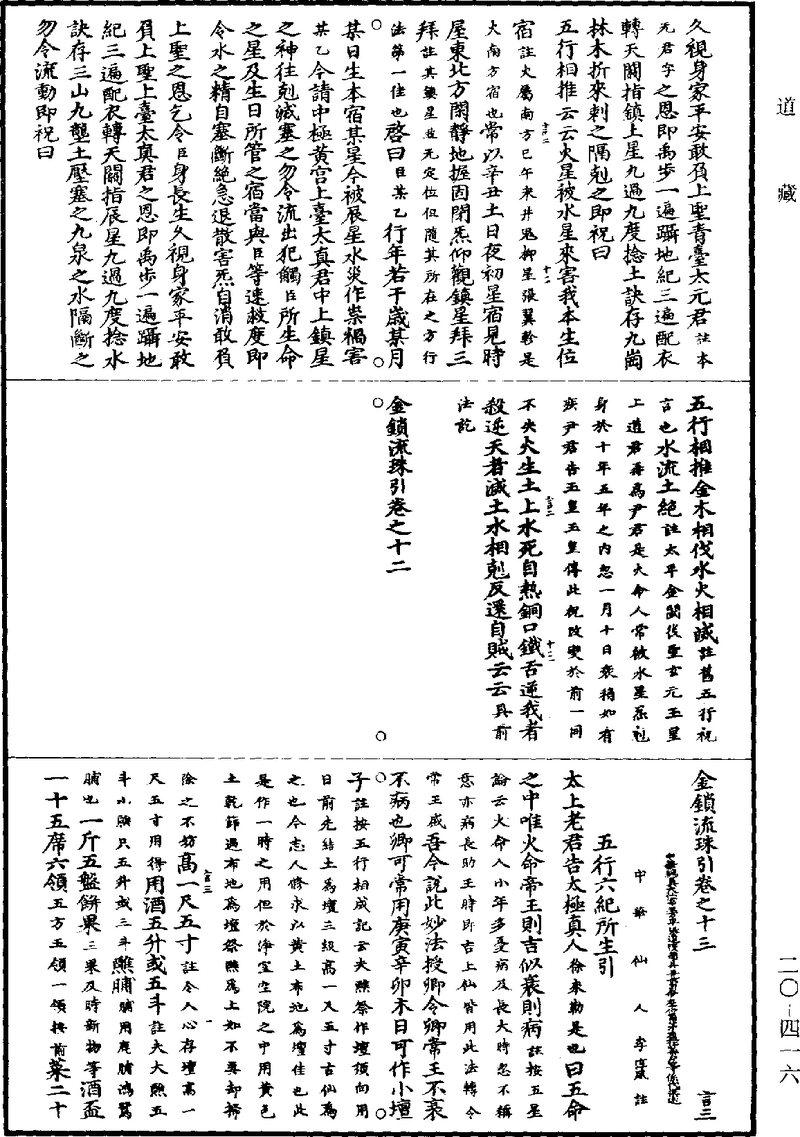 道藏
久視身家平安敢負上聖青臺太元君註本
元君字之恩即禹步一遍躡地紀三遍配衣
轉天關指鎮上星九過九度捻土訣存九崗
林木折來刺之隔剋之即祝曰
五行相推云云火星被水星來害我本生位
宿註火屬南方巳午未井鬼柳星張翼軫是
大南方宿也常以辛丑土日夜初星宿見時
屋東北方閑靜地握固閉炁仰觀鎮星拜三
拜註其鎮星並无定位但隨其所在之方行
法第一佳也啓曰臣某乙行年若干歲某月
某日生本宿某星今被辰星水災作祟禍害
某乙今請中極黃宮上臺太真君中上鎮星
之神往剋滅塞之勿令流出犯觸臣所生命
之星及生日所管之宿當與臣等速救度即
令水之精自塞斷絕急退散害炁自消敢負
上聖之恩乞令臣身長生久視身家平安敢
負上聖上臺太真君之恩即禹步一遍躡地
紀三遍配衣轉天關指辰星九過九度捻水
訣存三山九壟土壓塞之九泉之水隔斷之
勿令流動即祝曰
五行相推金木相伐水火相滅註舊五行祝
言也水流土絕註太平金闕後聖玄元玉星
上道君再為尹君是火命人常被水星惡剋
身於十年五年之內忽一月十日衰禍如有
疾尹君告玉皇玉皇傳此祝改變於前一同
不失火生土上水死自熱銅口鐵舌逆我者
殺逆天者滅土水相剋反還自賊云云具前
法訖
金鎖流珠引卷之十二
金鎖流珠引卷之十三 言三
中華仙人李淳風註
五行六紀所生引
太上老君告太極真人徐來勒是也曰五命
之中唯火命帝王則吉似衰則病註按五星
論云火命人小年多憂病及長大時忽不稱
意亦病長助王時即吉上仙皆用此法轉令
常王盛吾今說此妙法授卿令卿常王不衰
不病也卿可常用庚寅辛卯木日可作小壇
子註按五行相成記云夫醮祭作壇須向用
日前先結土為壇三級高一尺五寸古仙為
之也今志人修求以黃土布地為壇佳也此
是作一時之用但於淨室空院之中用黃色
土乾篩遍布地為壇祭醮為上如不要却掃
除之不妨高一尺五寸註令人心存壇高一
尺五寸用得用酒五升或五斗註夫大醮五
斗小醮只五升或三斗醮脯脯用鹿脯鴻鴛
脯也一斤五盤餅果三果及時新物等酒盃
一十五席六領五方五領一領按前菜二十
二〇－四一六